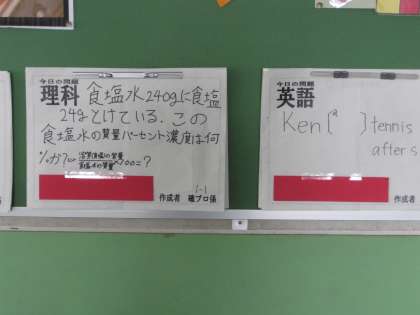 今日の問題
理科 食塩水240gに食塩
24gとけている。この
食塩水の質量パーセント濃度は何
%か?
×100=?
作成者 1-1 確プロ係
今日の問題
英語
Ken [ ] tennis
after s
作成者